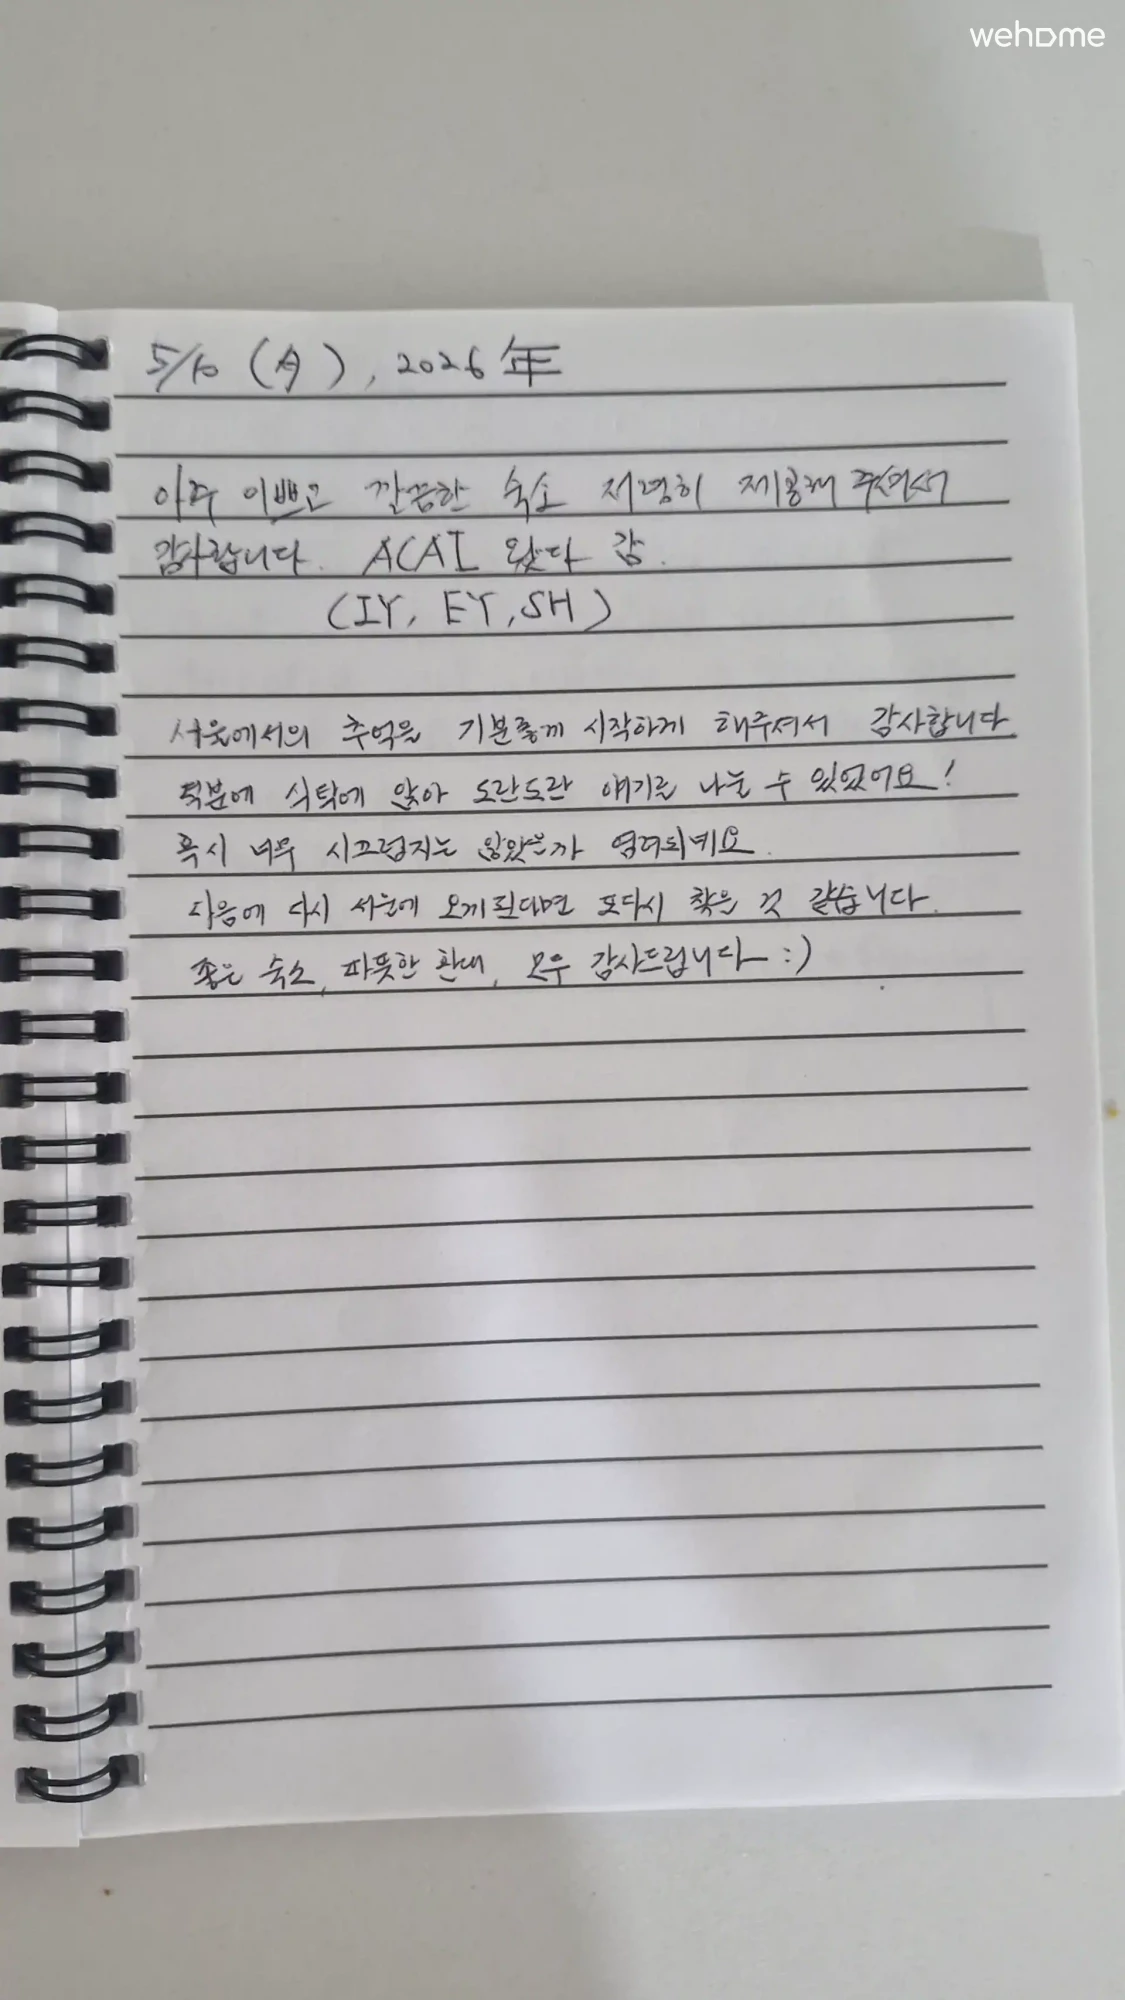 wehome
5/10 (月), 2026 年
아주 이쁘고 깔끔한 숙소 저렴히 제공해 주셔서
감사합니다. ACAI 왔다 감.
(IY, EY, SH)
서울에서의 추억을 기분좋게 시작하게 해주셔서 감사합니다
덕분에 식탁에 앉아 도란도란 얘기를 나눌 수 있었어요!
혹시 너무 시끄럽지는 않았을까 염려되네요.
다음에 다시 서울에 오게된다면 또다시 찾을 것 같습니다.
좋은 숙소, 따뜻한 환대, 모두 감사드립니다 :)